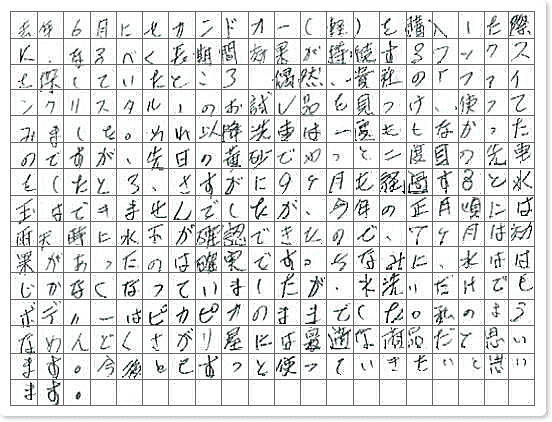 去年6月にセカンドカー(軽)を購入した際
に、なるべく長期間効果が持続するワックス
を探していたところ 偶然、貴社の「ファイ
ンクリスタル」のお試し品を見つけ、使って
みました。それ以降洗車は一度もしなかった
のですが、先日の黄砂でやっと二度目の洗車
をしたところ、さすがに9ヶ月も経過すると水
玉はできませんでしたが、今年の正月頃には
雨天時に水玉が確認できたので、7ヶ月は効
果があったのは確実です。ちなみに、水はは
じかなくなっていましたが、水洗いだけでも
ボディーはピカピカのままでした。私のよう
なめんどくさがり屋には最適な商品だと思い
ます。今後ともずっと使っていきたいと思い
ます。